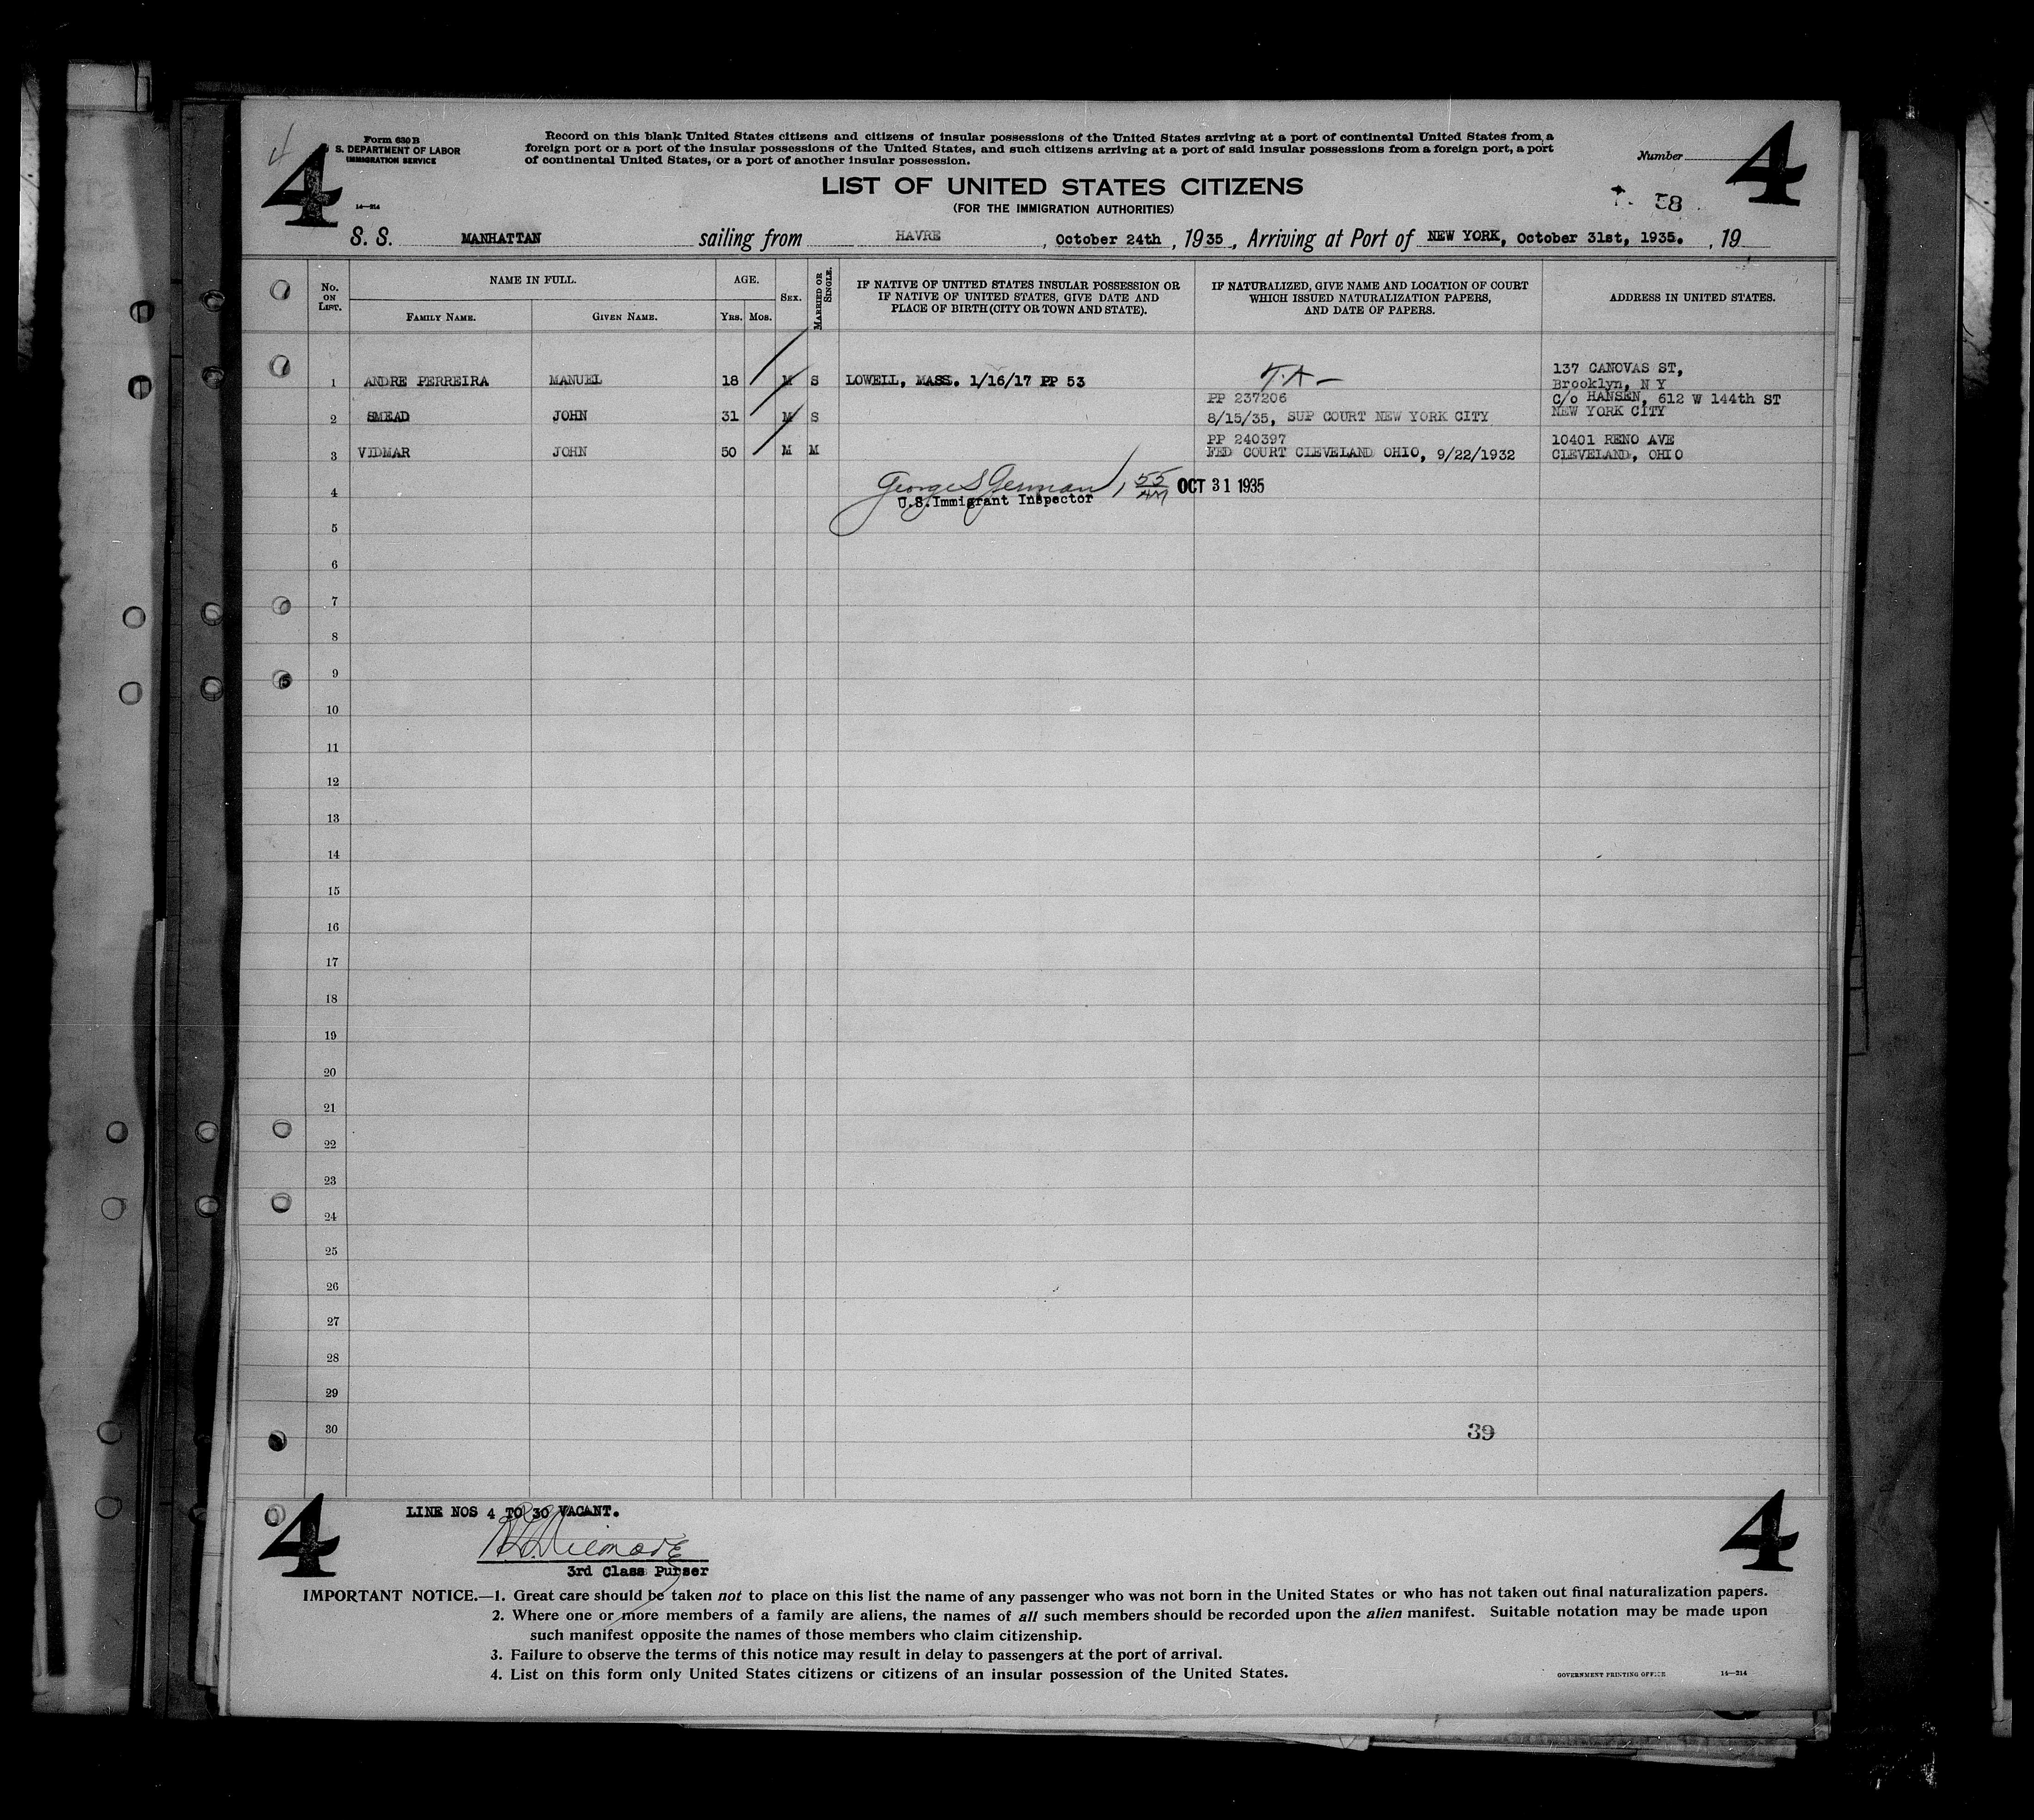 4
Form 630 B
S. DEPARTMENT OF LABOR
IMMIGRATION SERVICE
14—214
Record on this blank United States citizens and citizens of insular possessions of the United States arriving at a port of continental United States from a
foreign port or a port of the insular possessions of the United States, and such citizens arriving at a port of said insular possessions from a foreign port, a port
of continental United States, or a port of another insular possession.
Number
4
4
LIST OF UNITED STATES CITIZENS
(FOR THE IMMIGRATION AUTHORITIES)
58
S. S. MANHATTAN sailing from HAVRE, October 24th, 1935, Arriving at Port of NEW YORK, October 31st, 1935. , 19
No. ON LIST.
NAME IN FULL.
FAMILY NAME. GIVEN NAME.
AGE.
YRS. MOS.
SEX.
MARRIED OR SINGLE.
IF NATIVE OF UNITED STATES INSULAR POSSESSION OR
IF NATIVE OF UNITED STATES, GIVE DATE AND
PLACE OF BIRTH (CITY OR TOWN AND STATE).
IF NATURALIZED, GIVE NAME AND LOCATION OF COURT
WHICH ISSUED NATURALIZATION PAPERS,
AND DATE OF PAPERS.
ADDRESS IN UNITED STATES.
137 CANOVAS ST,
1 ANDRE PERREIRA MANUEL 18 M S LOWELL, MASS. 1/16/17 PP 53 T.A— Brooklyn, N Y
PP 237206 C/o HANSEN, 612 W 144th ST
2 SMEAD JOHN 31 M S 8/15/35, SUP COURT NEW YORK CITY NEW YORK CITY
PP 240397 10401 RENO AVE
3 VIDMAR JOHN 50 M M FED COURT CLEVELAND OHIO, 9/22/1932 CLEVELAND, OHIO
George S German 55 OCT 31 1935
4 U.S. Immigrant Inspector
5
6
7
8
9
10
11
12
13
14
15
16
17
18
19
20
21
22
23
24
25
26
27
28
29
30 39
LINE NOS 4 TO 30 VACANT.
4
4
3rd Class Purser
IMPORTANT NOTICE.—1. Great care should be taken not to place on this list the name of any passenger who was not born in the United States or who has not taken out final naturalization papers.
2. Where one or more members of a family are aliens, the names of all such members should be recorded upon the alien manifest. Suitable notation may be made upon
such manifest opposite the names of those members who claim citizenship.
3. Failure to observe the terms of this notice may result in delay to passengers at the port of arrival.
4. List on this form only United States citizens or citizens of an insular possession of the United States.
GOVERNMENT PRINTING OFFICE 14—214